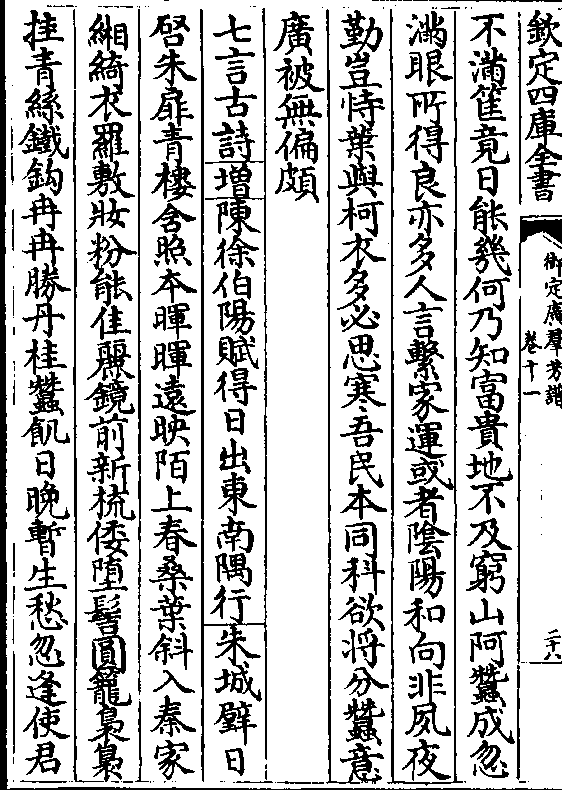 欽定四庫全書
御定廣羣芳譜
卷十一
二十八
不滿筐竟日能幾何乃知富貴地不及窮山阿蠶成忽
滿眼所得良亦多人言繫家運或者陰陽和向非夙夜
勤豈恃葉與柯衣多必思寒吾民本同科欲将分蠶意
廣被無偏頗
七言古詩增陳徐伯陽賦得日出東南隅行朱城璧日
啓朱扉青樓含照本暉暉遠映陌上春桑葉斜入秦家
緗綺衣羅敷妝粉能佳麗鏡前新梳倭墮髻圓籠裊裊
挂青絲鐵鈎冉冉勝丹桂蠶飢日晚暫生愁忽逢使君